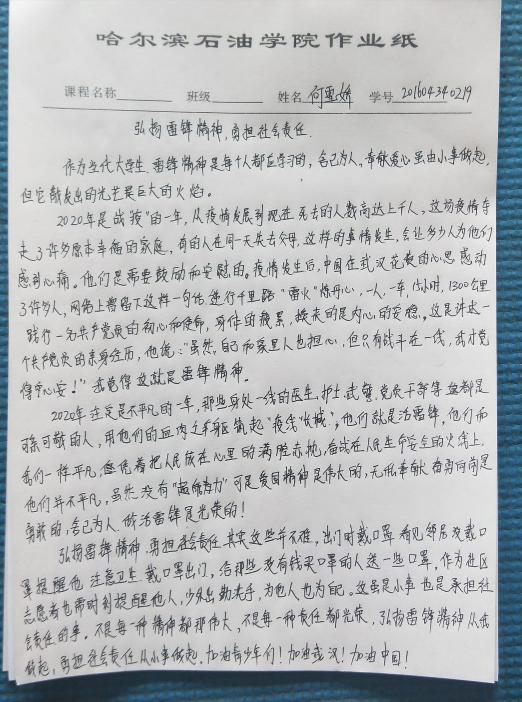 哈尔滨石油学院作业纸
课程名称 班级 姓名 何雪娇 学号 201604340219
弘扬雷锋精神,勇担社会责任.
作为当代大学生.雷锋精神是每个人都应学习的,舍己为人,奉献爱心虽由小事做起,
但它散发出的光芒是巨大的火焰。
2020年是战"疫"的一年,从疫情发展到现在死去的人数高达上千人,这场疫情夺
走了许多原本幸福的家庭,有的人在同一天失去父母,这样的事情发生,会让多少人为他们
感到心痛。他们是需要鼓励和安慰的。疫情发生后,中国在武汉花费的心思感动
了许多人,网络上曾留下这样一句话 逆行千里路"雷火"炼丹心,一人,一车,15小时,1300公里
践行一名共产党员的初心和使命,身体的疲累,换来的是内心的安稳。这是讲述一
个共产党员的亲身经历,他说:"虽然,自己和家里人也担心,但只有战斗在一线,我才觉
得心安!"我觉得这就是雷锋精神。
2020年注定是不平凡的一年,那些身处一线的医生,护士,武警,党员干部等 这都是
可亲可敬的人,用他们的血肉之躯筑起"疫线长城",他们就是活雷锋,他们和
我们一样平凡,凭借着把人民放在心里的满腔赤忱,奋战在人民生命安全的火湾上,
他们并不平凡,虽然没有"超能力"可是爱国精神是伟大的,无私奉献 奋勇向前是
勇敢的,舍己为人 做活雷锋是光荣的!
弘扬雷锋精神.勇担社会责任.其实这些并不难,出门时戴口罩 看见邻居没戴口
罩提醒他 注意卫生 戴口罩出门,给那些没有钱买口罩的人送一些口罩,作为社区
志愿者也需时刻提醒他人,少外出勤洗手,为他人也为自己。这虽是小事 也是承担社
会责任的事。不是每一种精神都那伟大,不是每一种责任都光荣,弘扬雷锋精神从我
做起,勇担社会责任从小事做起,加油青少年们!加油武汉!加油中国!